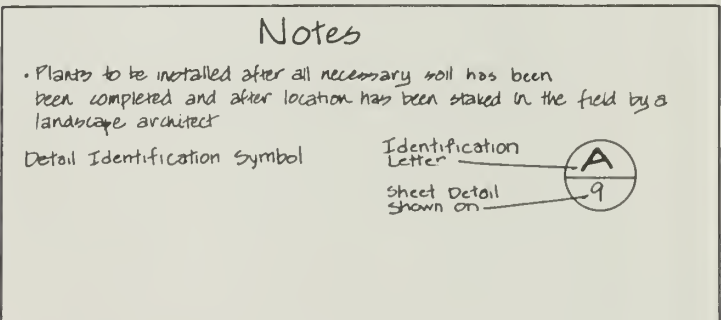 Notes
• Plants to be installed after all necessary soil has been
been completed and after location has been staked in the field by a
landscape architect
Detail Identification Symbol
Identification
Letter
A
Sheet Detail
Shown on
9